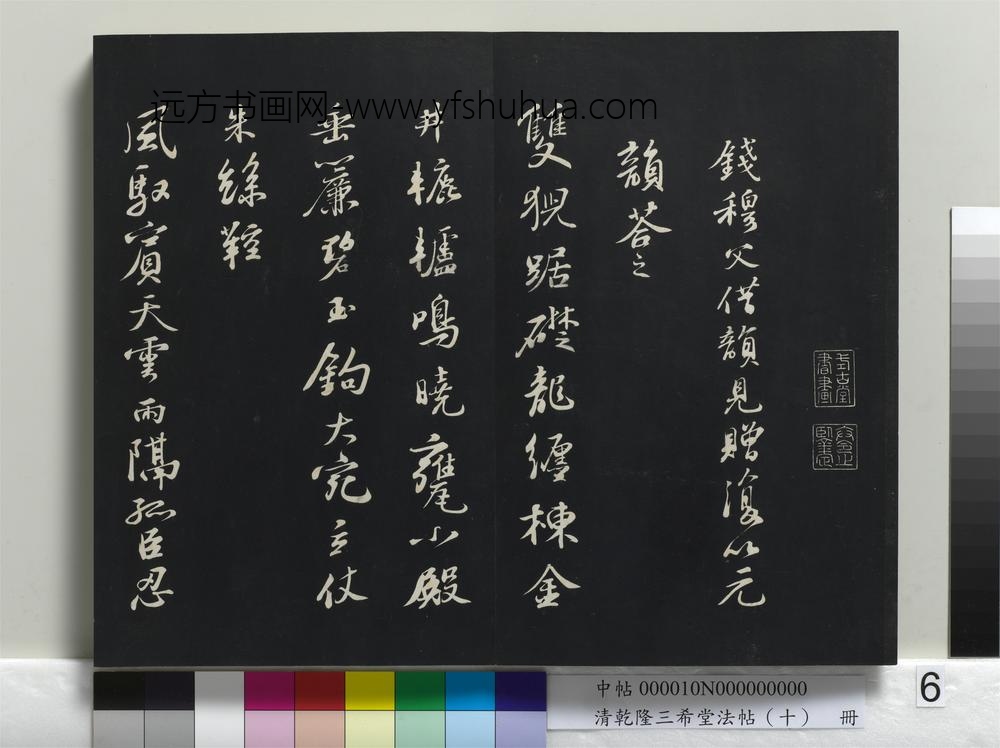 錢穆父借韻見贈復以元
韻荅之
雙猊踞礎龍纏棟金
井轆轤鳴曉甕小殿
垂簾碧玉鉤大宛立仗
朱絲鞚
風馭賓天雲雨隔孤臣忍
书画网 www.yfshuhua.com
远方
中帖 000010N000000000
清乾隆三希堂法帖（十） 冊
6